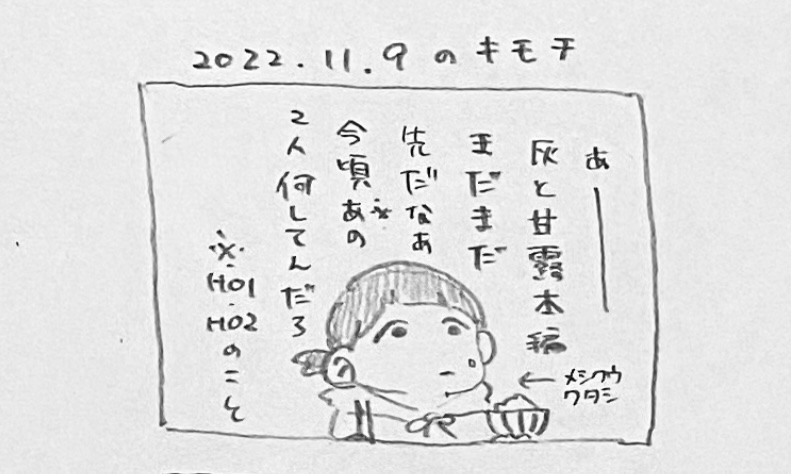 2022.11.9のキモチ
あー
灰と甘露本編
まだまだ
先だなあ
今頃あの※
2人何してんだろ
※HO1・HO2のこと
←メシクウ
ワタシ